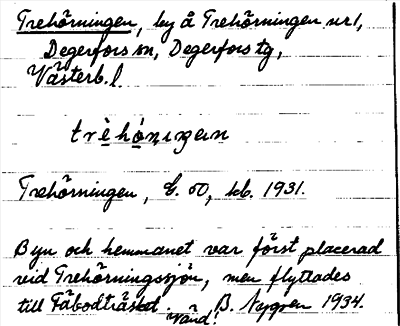 Trehörningen, by å Trehörningen nr 1,
Degerfors sn, Degerfors tg,
Västerb. l.
trèhö̀ṇıgeın
Trehörningen, G. 50, kb. 1931.
Byn och hemmanet var först placerad
vid Trehörningssjön, men flyttades
till Fäbodträsket. B. Nygren 1934.
Vänd!